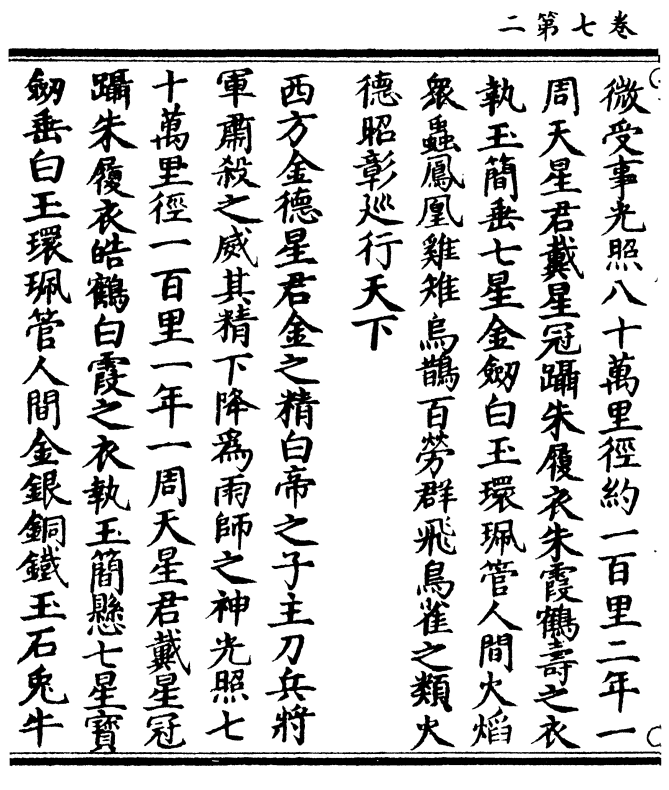 卷七第二
微受事光照八十萬里徑約一百里二年一
周天星君戴星冠躡朱履衣朱霞鶴壽之衣
執玉簡垂七星金劒白玉環珮管人間火焰
衆蟲鳳凰雞雉烏鵲百勞群飛鳥雀之類火
德昭彰巡行天下
西方金德星君金之精白帝之子主刀兵將
軍肅殺之威其精下降爲雨師之神光照七
十萬里徑一百里一年一周天星君戴星冠
躡朱履衣皓鶴白霞之衣執玉簡懸七星寶
劒垂白玉環珮管人間金銀銅鐵玉石兎牛